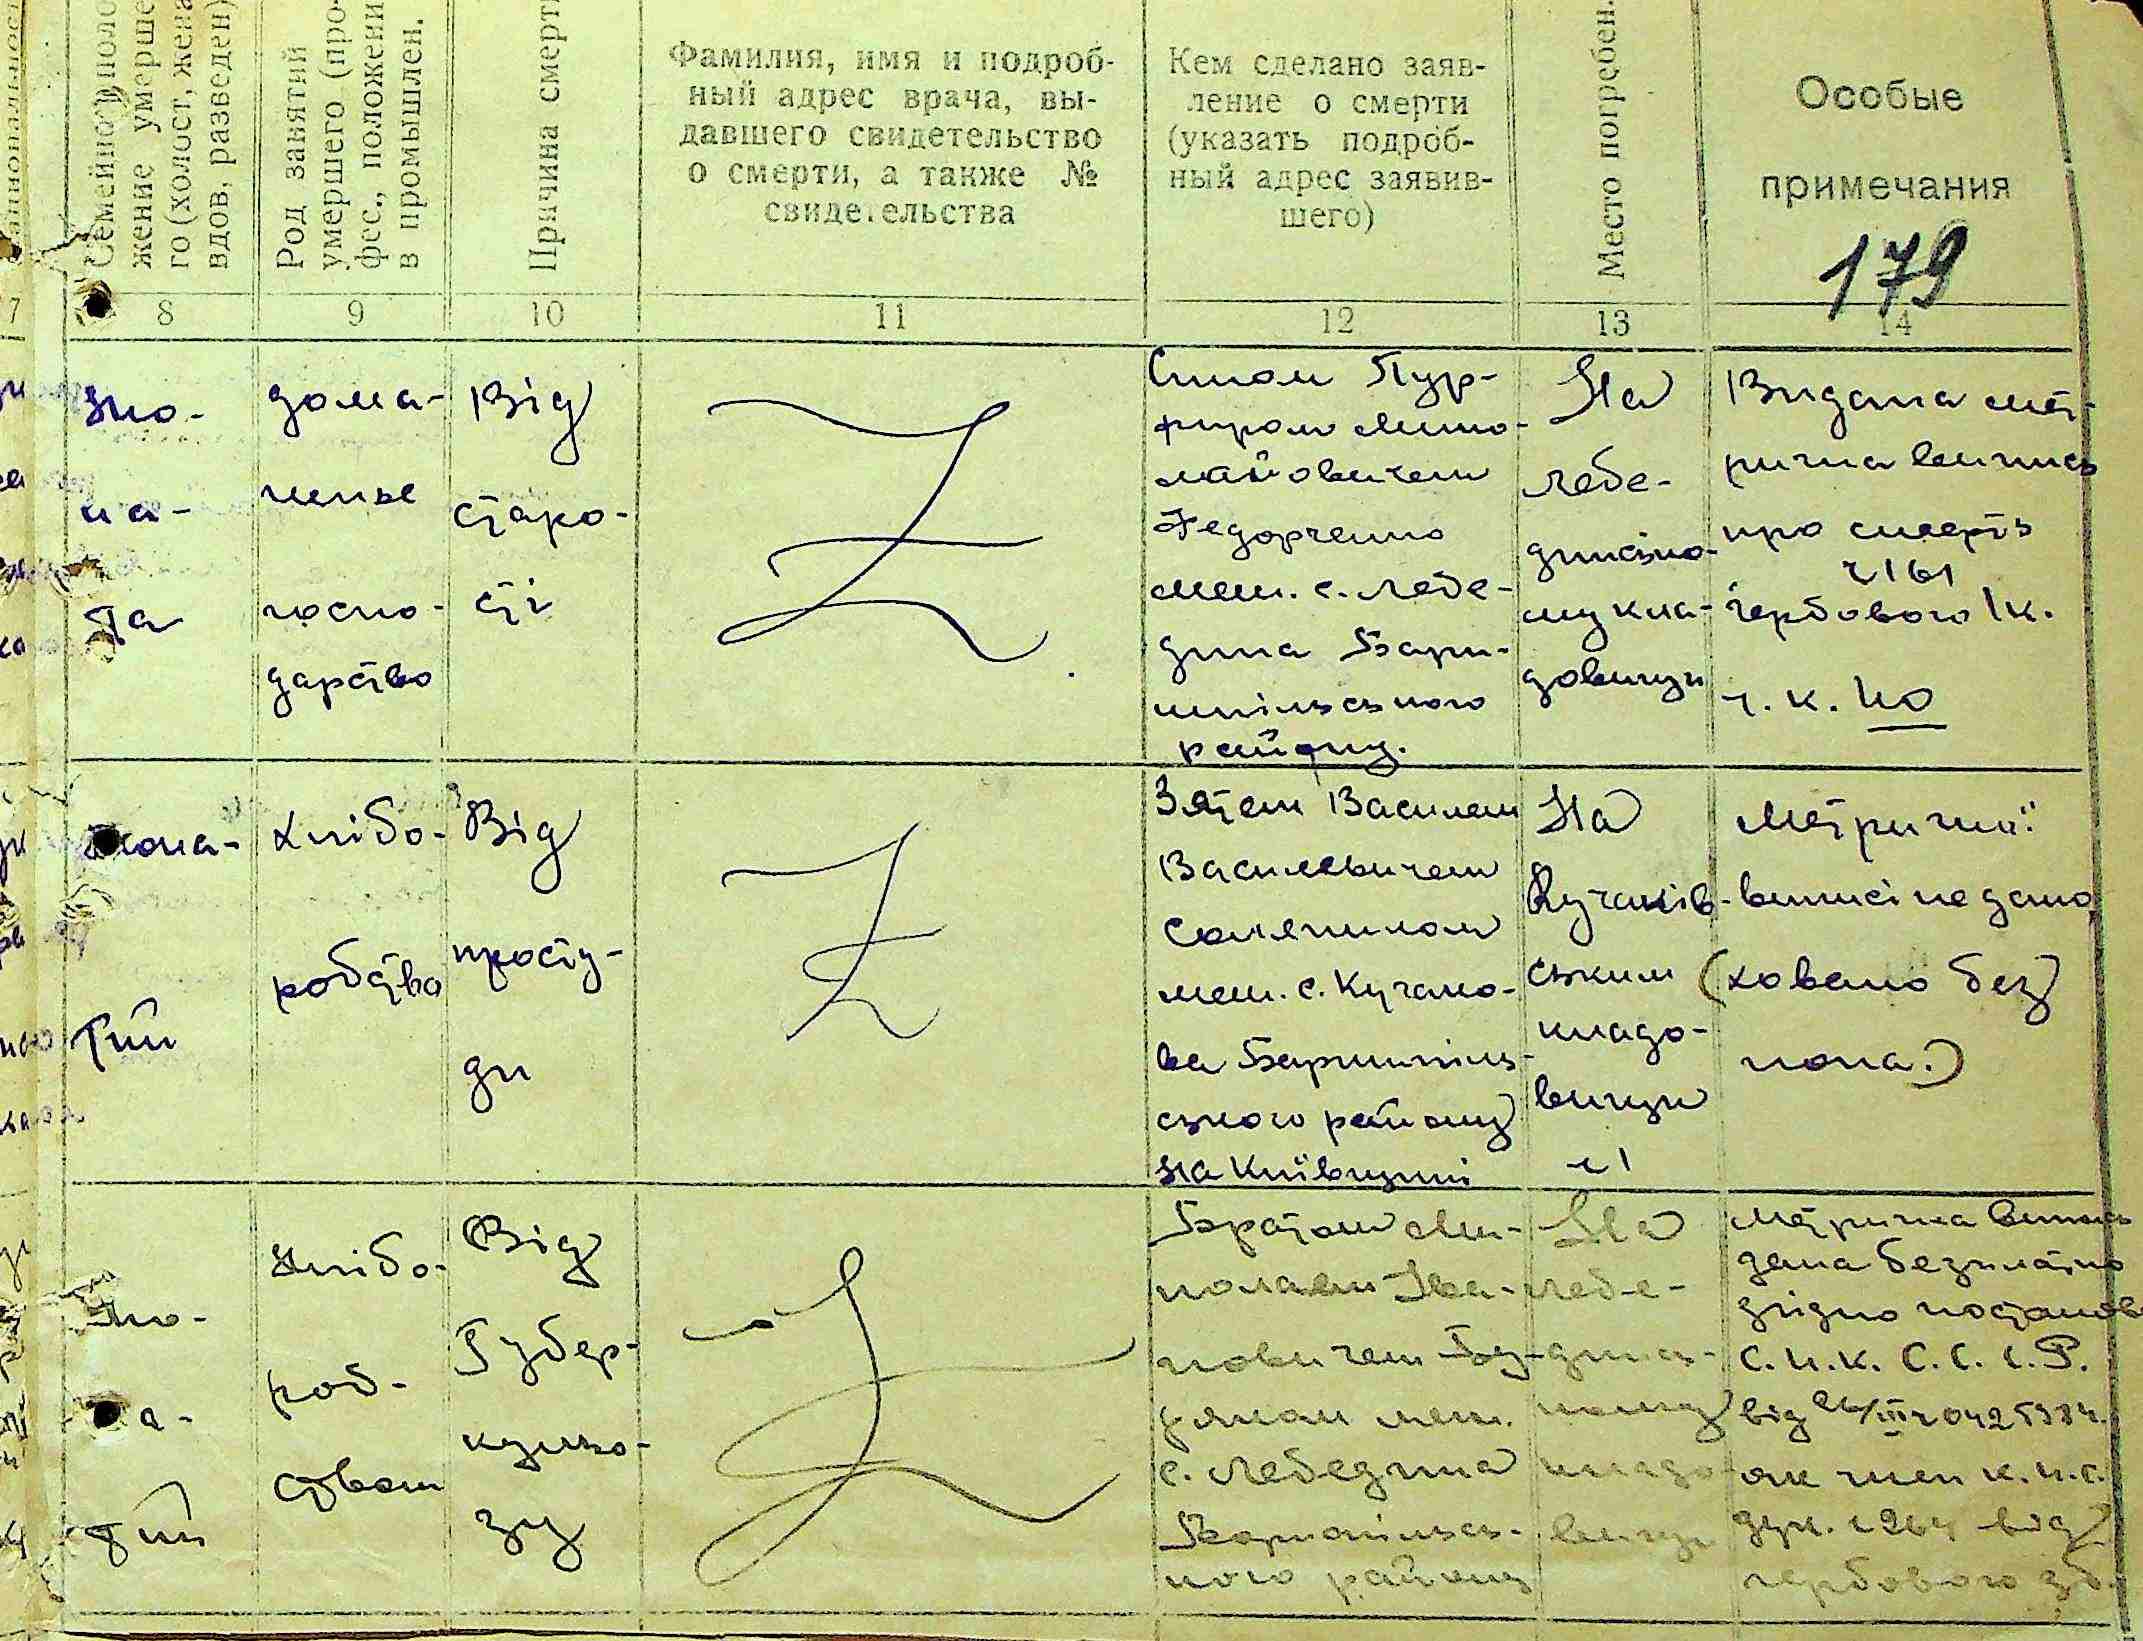 Семейно поло
жение умерше
го (холост, жена
вдов, разведен)
Род занятий
умершего (про-
фес., положени
в промышлен.
Причина смерт
Фамилия, имя и подроб-
ный адрес врача, вы-
давшего свидетельство
о смерти, а также №
свидетельства
Кем сделано заяв-
ление о смерти
(указать подроб-
ный адрес заявив-
шего)
Место погребен.
Особые
примечания
179
7
8
9
10
11
12
13
14
жо-
на-
та
дома-
шнье
госпо-
дарство
Від
старо-
сті
Сином Пур-
фиром Мико-
лайовичем
Федорченко
меш. с. Лебе-
дина Бари-
шпільського
району.
На
Лебе-
динсько-
му кла-
довищи
Видана мет-
рична випись
про смерть
ч 161
гербового 1 к.
ч. к. 40
жона-
тий
Хлібо-
робства
Від
просту-
ди
Зятем Василем
Василевичем
меш. с. Кучако-
ва Баришпіль-
ського району
на Київщині
На
Кучаків-
ським
кладо-
вищи
ч 1
Метричної
виписі не дано,
(ховано без
попа.)
жо-
на-
тий
Хлібо-
роб-
ством
Від
Тубер-
кульо-
зу
Братом Ми-
колаєм Іва-
новичем Бу-
меш.
с. Лебедина
Бариспільсь-
кого району
На
Лебе-
динсь-
кому
кладо-
вищи
Метрична випись
дана безплатно
згідно постанов
С.Н.К. С.С.С.Р.
від
як член к.н.с.
від
гербового зб.